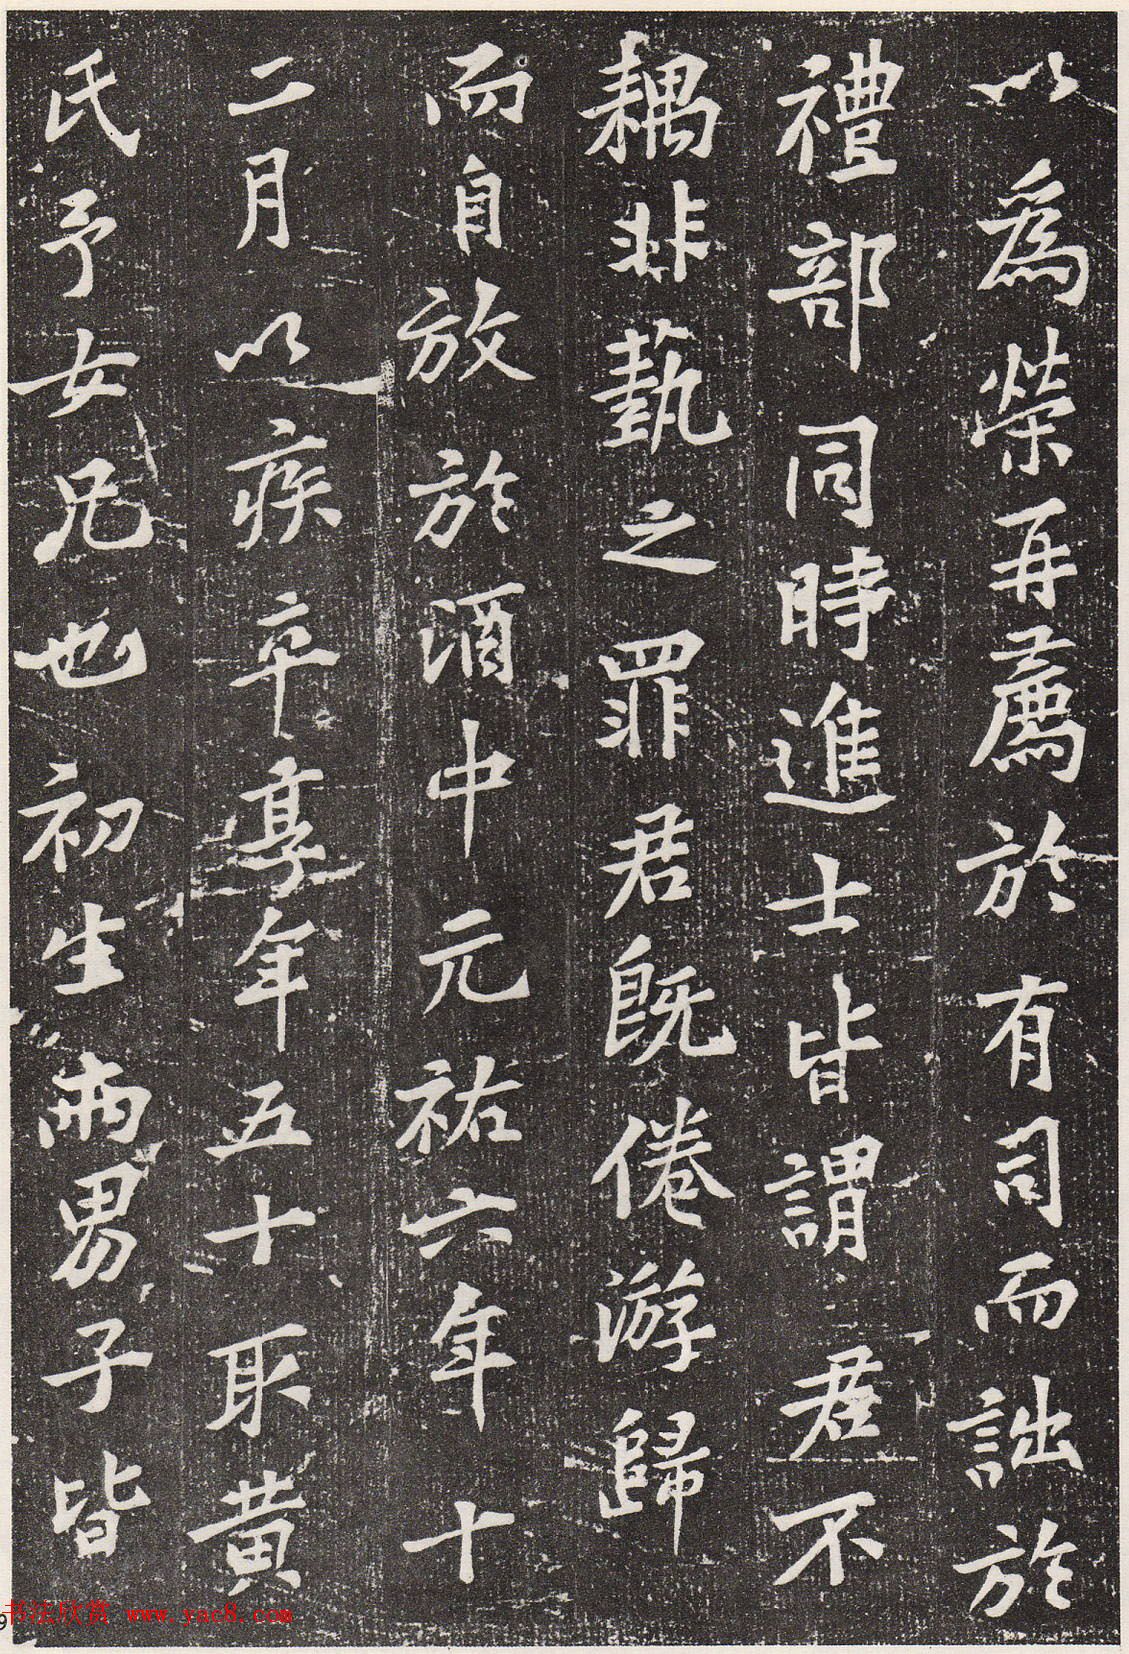 以為榮再薦於有司而詘於
禮部同時進士皆謂君不
耦非藝之罪君既倦游歸
而自放於酒中元祐六年十
二月以疾卒享年五十取黃
氏予女兄也初生兩男子皆
书法欣赏 www.yac8.com
9